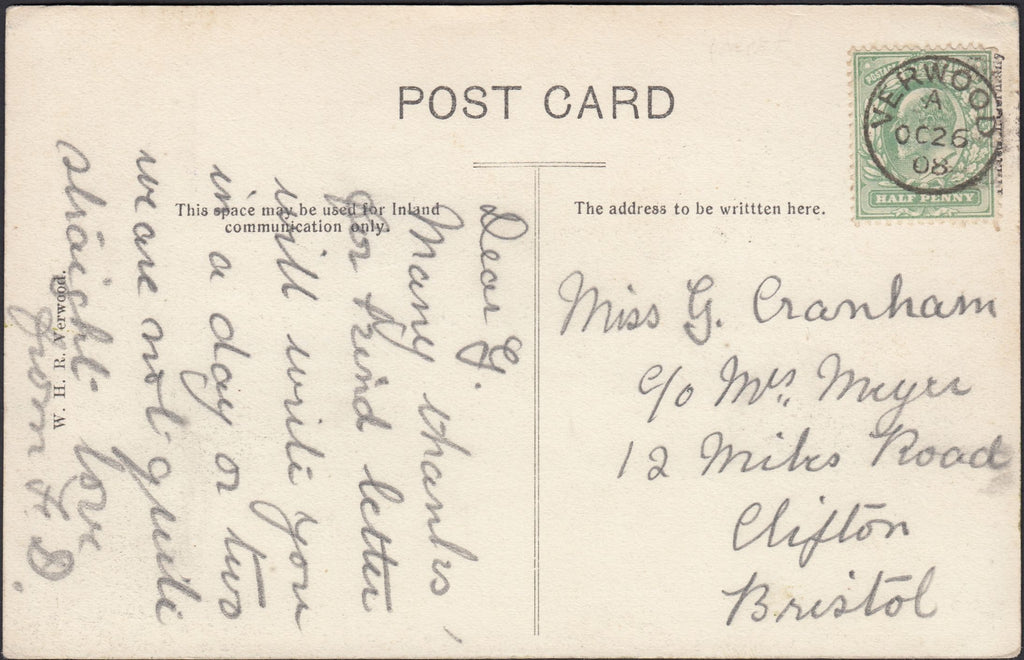 POST CARD
This space may be used for Inland
communication only.
The address to be writtten here.
VERWOOD
A
OC 26
08
HALF PENNY
W. H. R. Verwood.
Dear G.
Many thanks,
for kind letter
will write you
in a day or two
we are not quite
straight love
from F D.
Miss G. Cranham
c/o Mrs. Meyer
12 Miles Road
Clifton
Bristol